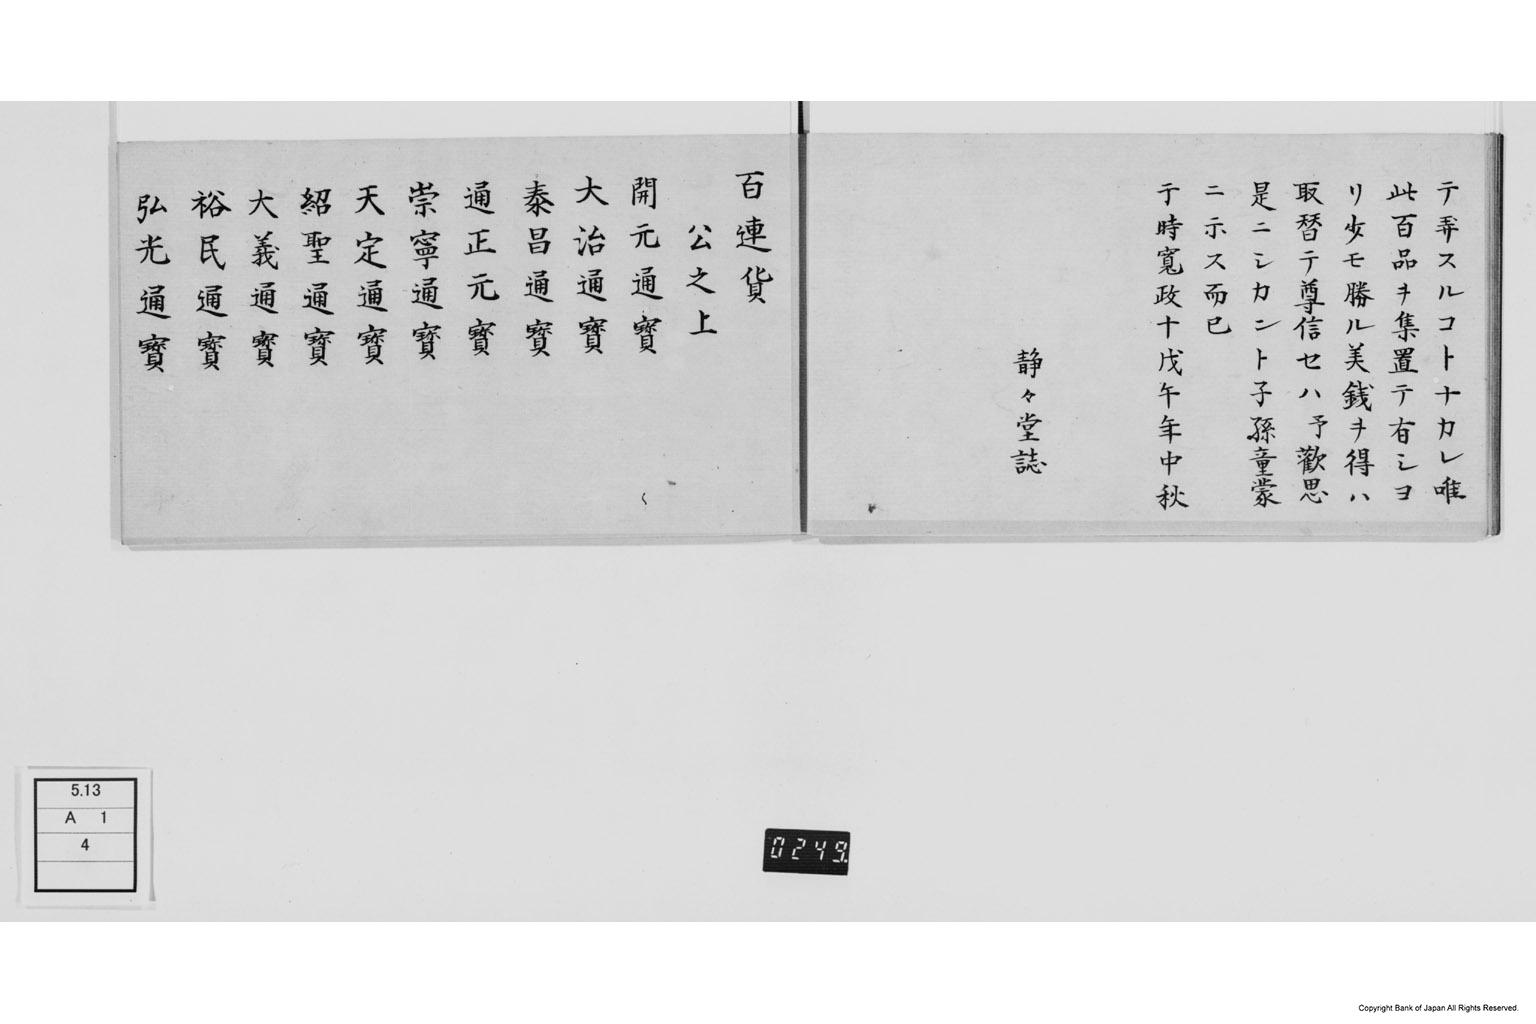 テ弄スルコトナカレ唯
此百品ヲ集置テ有シヨ
リ少モ勝ル美銭ヲ得ハ
取替テ尊信セハ予歡思
是ニシカント子孫童蒙
ニ示ス而已
于時寛政十戊午年中秋
静々堂誌
百連貨
公之上
開元通寳
大治通寳
泰昌通寳
通正元寳
崇寧通寳
天定通寳
紹聖通寳
大義通寳
裕民通寳
弘光通寳
5.13
A 1
4
0249
Copyright Bank of Japan All Rights Reserved.